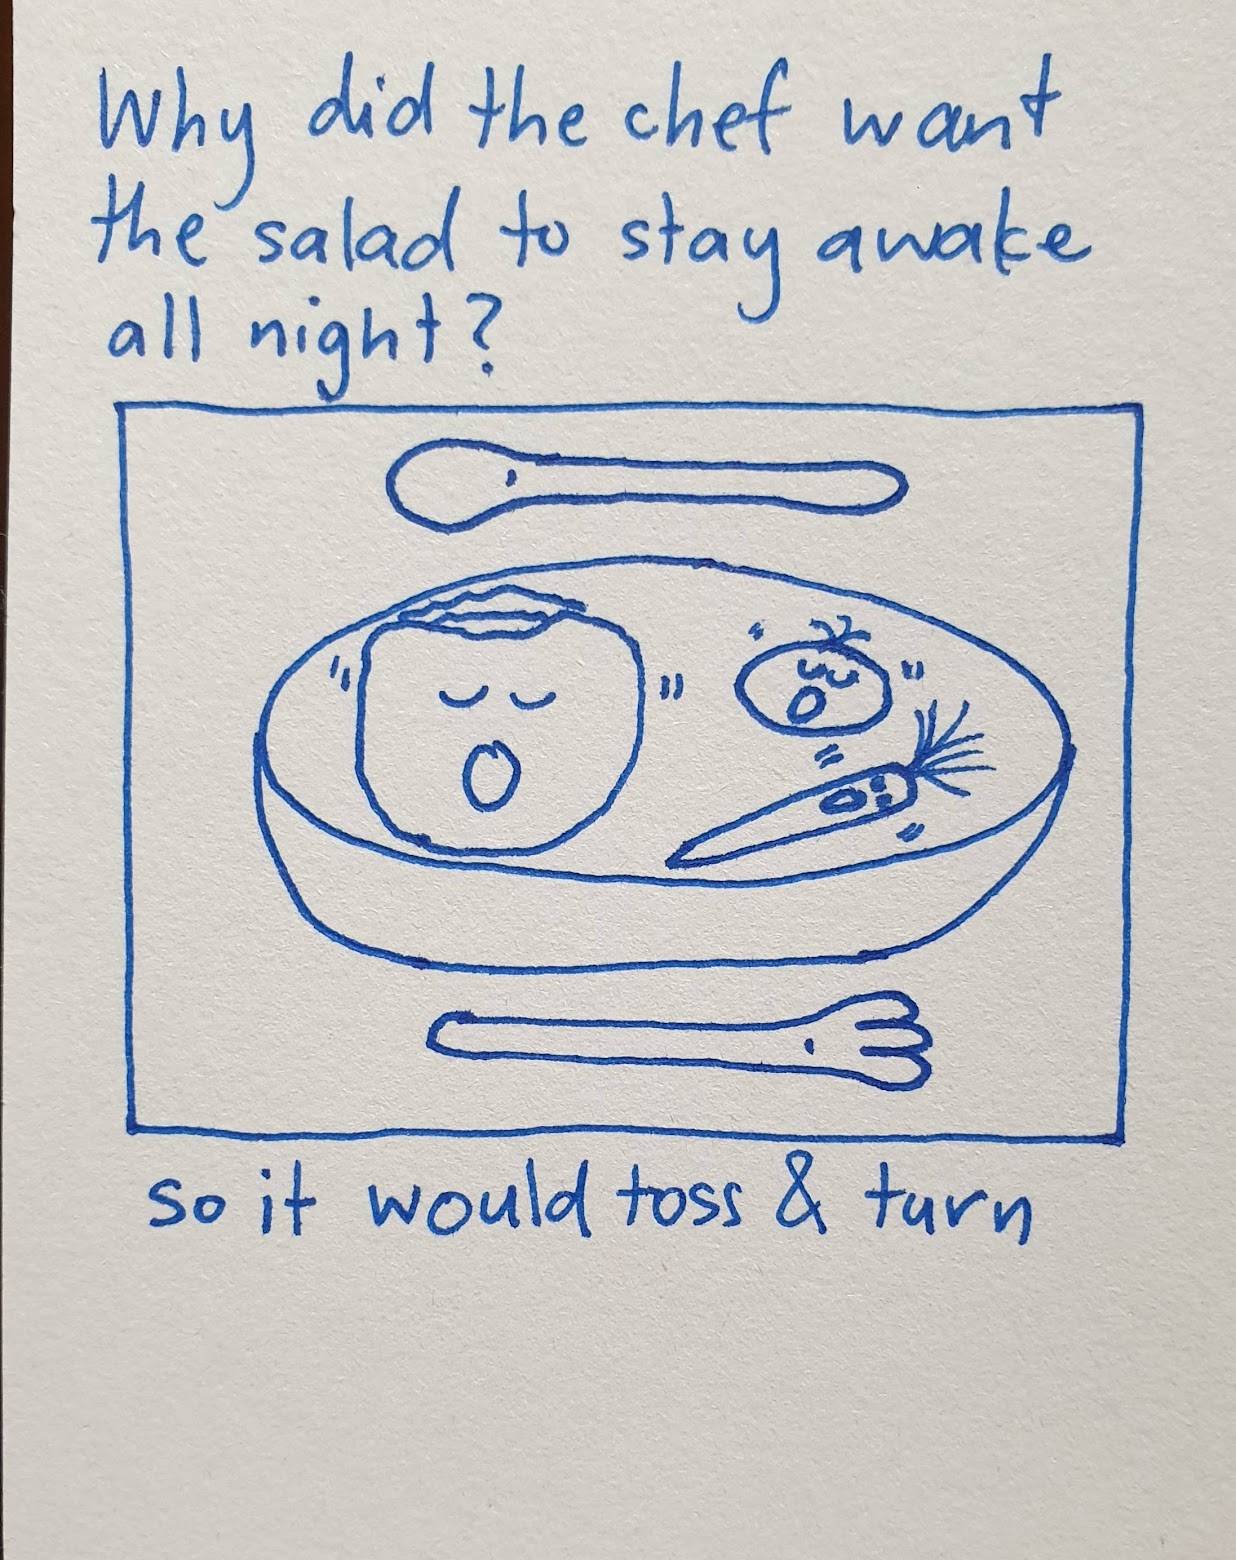 Why did the chef want
the salad to stay awake
all night?
so it would toss & turn